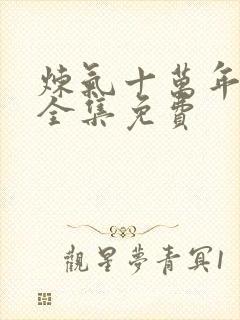 煉氣十萬年
全集免費
觀星夢青冥1